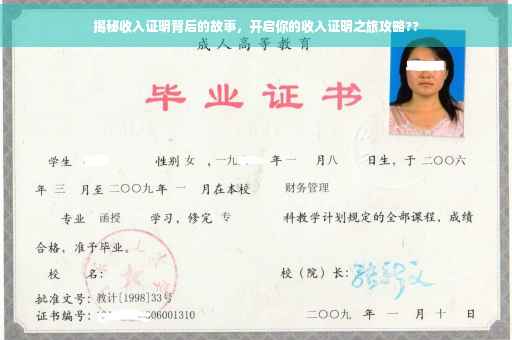 揭秘收入证明背后的故事，开启你的收入证明之旅攻略??
成人高等教育
毕业证书
学生 性别 女 ，一九 年 一 月 八 日生，于 二〇〇六
年 三 月至 二〇〇九 年 一 月在本校 财务管理
专业 函授 学习，修完 专 科教学计划规定的全部课程，成绩
合格，准予毕业。
校 名： 校（院）长：
批准文号：教计[1998]33号
证书编号： 06001310 二〇〇九 年 一 月 十 日